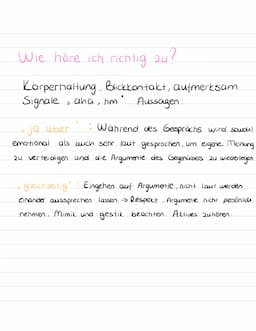 Wie höre ich richtig zu?
Körperhaltung, Blickkontakt, aufmerksam
Signale "aha, hm", Aussagen
"ja aber": Während des Gesprächs wird sowohl
emotional als auch sehr laut gesprochen, um eigene Meinung
zu verteidigen und die Argumente des Gegenübers zu wiederlegen
"gleichzeitig": Eingehen auf Argumente, nicht laut werden
einander aussprechen lassen → Respekt, Argumente nicht persönlich
nehmen, Mimik und gestik beachten. Aktives zuhören